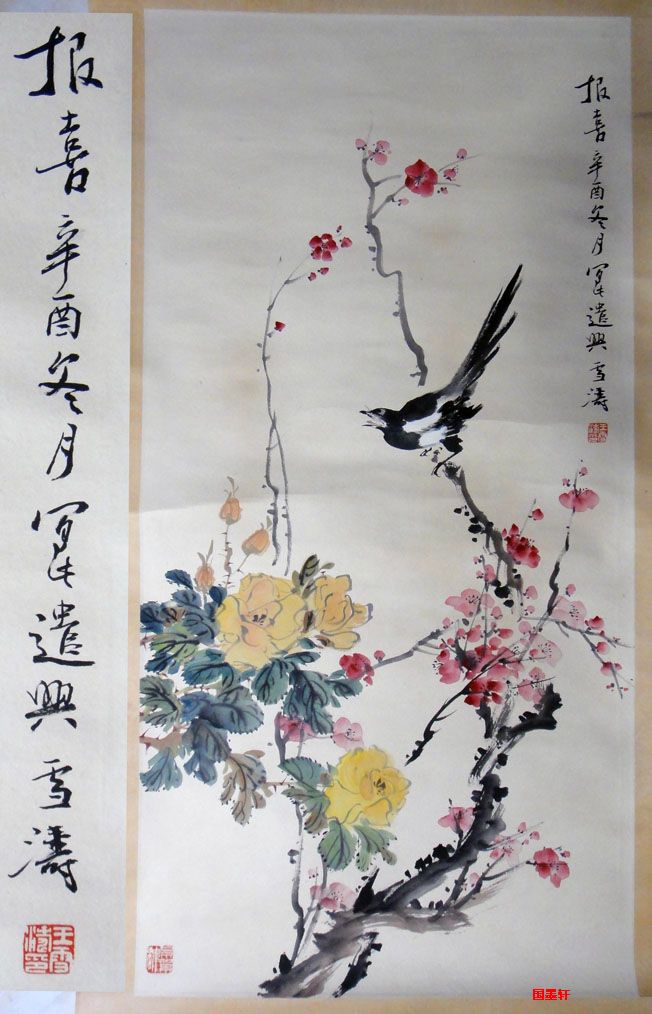 报喜辛酉冬月写此遣兴雪涛
王雪涛印
报喜辛酉冬月写此遣兴雪涛
国墨轩